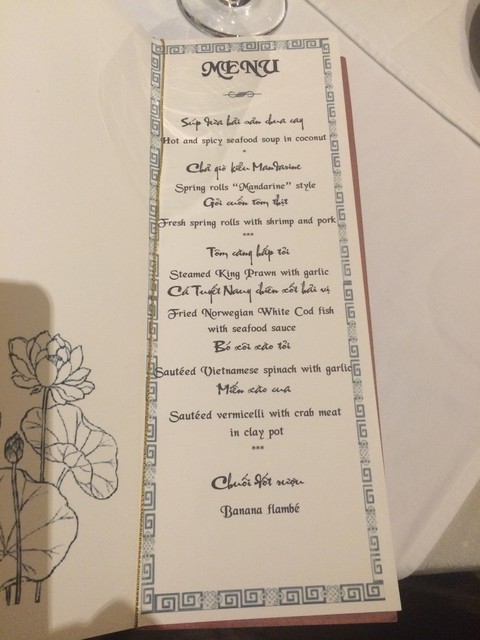 MENU
Súp dừa hải sản chua cay
Hot and spicy seafood soup in coconut
*
Chả giò kiểu Mandarine
Spring rolls "Mandarine" style
Gỏi cuốn tôm thịt
Fresh spring rolls with shrimp and pork
***
Tôm càng hấp tỏi
Steamed King Prawn with garlic
Cá Tuyết Nauy chiên xốt hải vị
Fried Norwegian White Cod fish
with seafood sauce
Bó xôi xào tỏi
Sautéed Vietnamese spinach with garlic
Miến xào cua
Sautéed vermicelli with crab meat
in clay pot
***
Chuối đốt rượu
Banana flambé